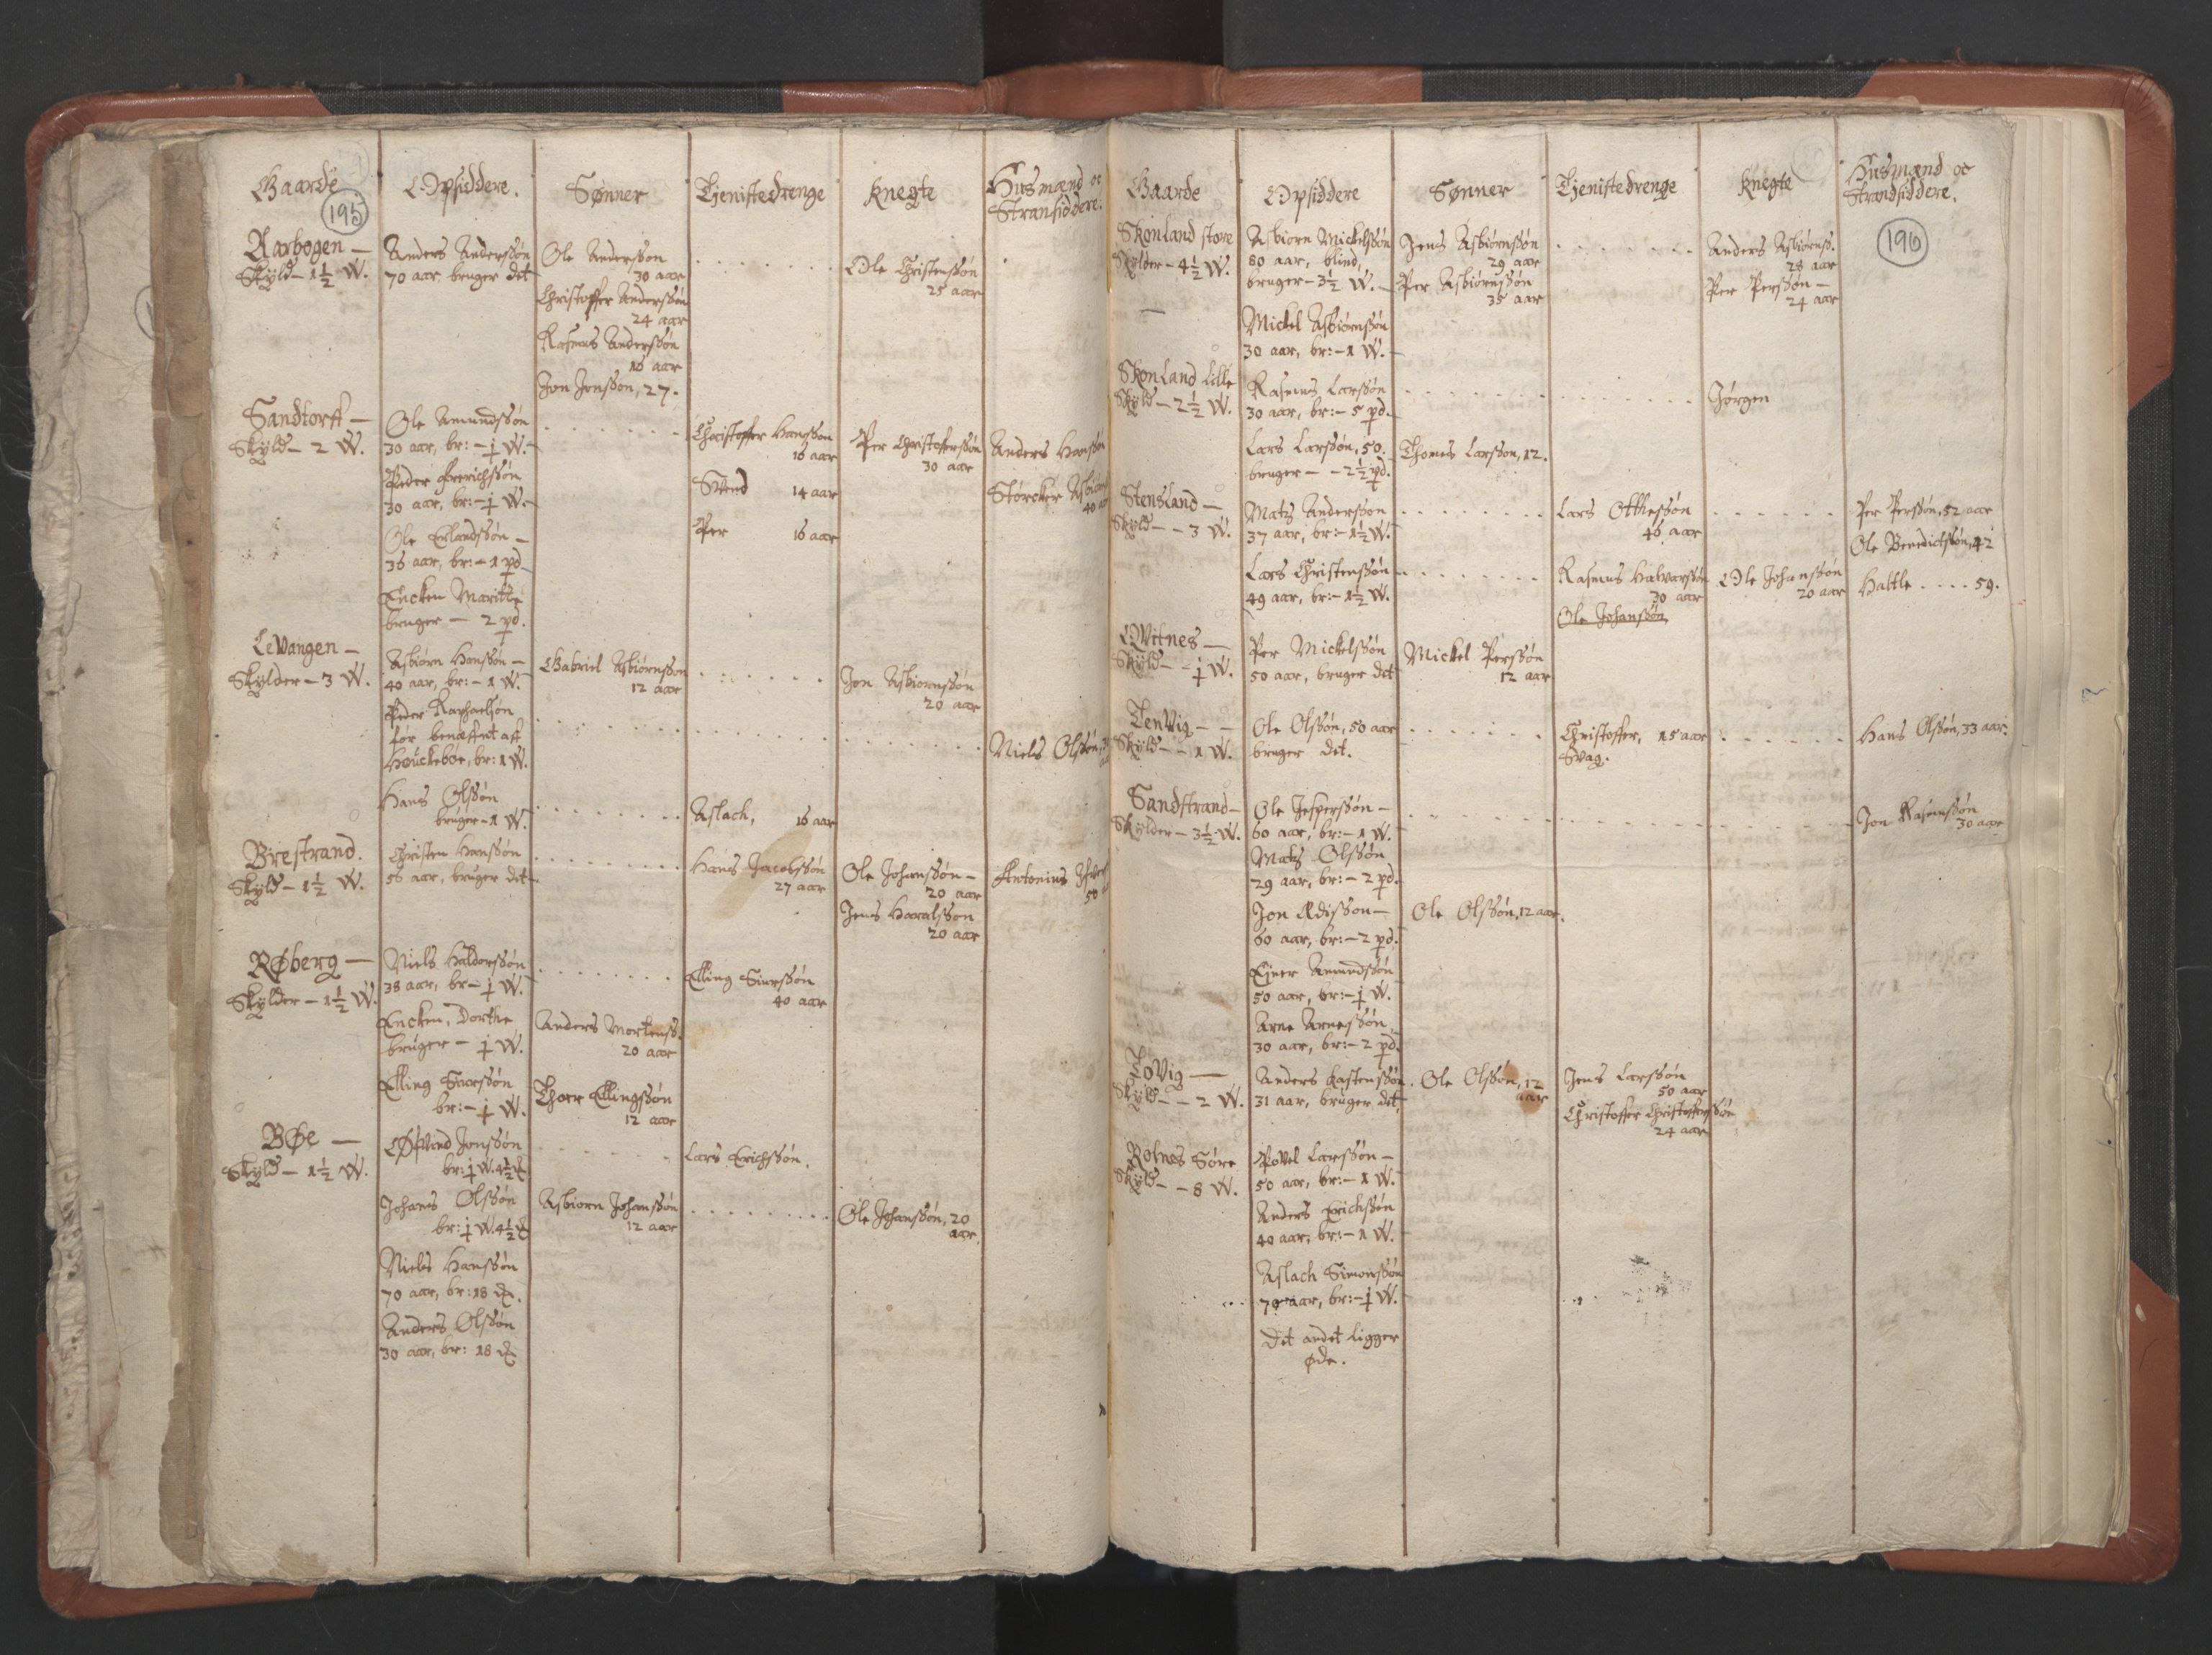 Gaarde
195
Opsiddere.
Sønner
Tjenistedrenge
Knegte
Husmænd oc
Stransiddere.
Aarbogen —
Skyld — 1½ W.
Anders Anderssøn
70 aar, bruger det
Ole Anderssøn
30 aar
Christoffer Anderssøn
24 aar
Rasmus Anderssøn
16 aar
Jon Jonssøn, 27.
Ole Christenssøn
25 aar
Sandtorff —
Skyld — 2 W.
Ole Amundssøn
30 aar, br: — ½ W.
Peder Frerichssøn
30 aar, br: — ½ W.
Ole Erlandssøn —
36 aar, br: — 1 pd
Encken Maritte
bruger — 2 pd.
Christoffer Hanssøn
16 aar
Svend 14 aar
Per 16 aar
Per Christofferssøn
30 aar
Anders Hanssøn
Størcker
40
LeVangen —
Skylder — 3 W.
Asbiørn Hanssøn —
40 aar, br: — 1 W.
Peder Raphaelsøn
for benæffnt aff
Høuckeboe, br: 1 W.
Hans Olssøn
bruger — 1 W.
Gabriel Asbiørnssøn
12 aar
Jon Asbiørnssøn
20 aar
Niels Olssøn
Aslach, 16 aar
Brestrand.
Skyld — 1½ W.
Christen Hanssøn
56 aar, bruger det
Hans Jacobssøn
27 aar
Ole Johanssøn —
20 aar
Jens Haralssøn
20 aar
Antonius
50
RØberg —
Skylder — 1½ W.
Niels Haldorssøn
38 aar, br — ½ W.
Encken, Dorthe
bruger — ½ W.
Elling Siurssøn
br: — ½ W.
Anders Mortenss.
20 aar
Thorr Ellingssøn
12 aar
Elling Siurssøn
40 aar
BØe —
Skyld — 1½ W.
Øffvind Jonssøn
br: ½ W. 4½
Johans Olssøn
br: ½ W. 4½
Niels Hanssøn
70 aar, br: 18
Anders Olssøn
30 aar, br: 18
Asbiørn Johanssøn
12 aar
Lars Erichssøn.
Ole Johanssøn, 20
aar.
Gaarde
Opsiddere
Sønner
Tjenistedrenge
Knegte
Husmænd oc
Strandsiddere.
196
Skonland store
Skylder — 4½ W.
Asbiørn Mickelssøn
80 aar, blind,
bruger — 3½ W.
Mickel Asbiørnssøn
30 aar, br: — 1 W.
Jens Asbiørnssøn
29 aar
Per Asbiørnssøn
35 aar
Anders Asbiørnss.
28 aar
Per Perssøn —
24 aar
Skonland Lille
Skyld — 2½ W.
Rasmus Larssøn
30 aar, br: — 5 pd.
Lars Larssøn, 50.
bruger — — 2½ pd.
Thomes Larssøn, 12.
Jørgen
Stensland —
Skyld — — 3 W.
Mats Anderssøn
37 aar, br: — 1½ W.
Lars Christenssøn
49 aar, br: — 1½ W.
Lars Otthessøn
46 aar
Rasmus Halvarssøn
30 aar
Ole Johanssøn
Ole Johanssøn
20 aar
Per Perssøn, 52 aar
Ole Benedictssøn, 42
Haltle . . . . 59.
EWitnes —
Skyld — — ½ W.
Per Mickelssøn
50 aar, bruger det
Mickel Perssøn
12 aar
TenVig — —
Skyld — — 1 W.
Ole Olssøn, 50 aar
bruger det.
Christoffer, 15 aar
Svag.
Hans Olssøn, 33 aar.
Sandstrand —
Skylder — 3½ W.
Ole Jesperssøn —
60 aar, br: — 1 W.
Mats Olssøn
29 aar, br: — 2 pd.
Jon Ædissøn —
60 aar, br: — 2 pd.
Ejner Amundssøn
50 aar, br: — ½ W.
Arne Arnessøn
30 aar, br: — 2 pd.
Ole Olssøn, 12 aar.
Jon Rasmussøn
30 aar
ToVig —
Skyld — — 2 W.
Anders Kastenssøn
31 aar, bruger det,
Ole Olssøn, 12
aar
Jens Larssøn
50 aar
Christoffer Christofferssøn
24 aar
Rolnes Søre
Skyld — — 8 W.
Povel Larssøn —
50 aar, br: — 1 W.
Anders Erichssøn
40 aar, br: — 1 W.
Aslach Simonssøn
70 aar, br: — ½ W.
Det andet ligger
øde.